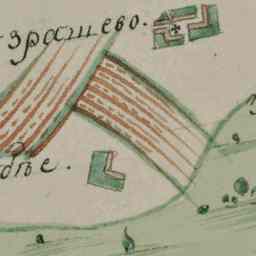 зрашево.
дье.